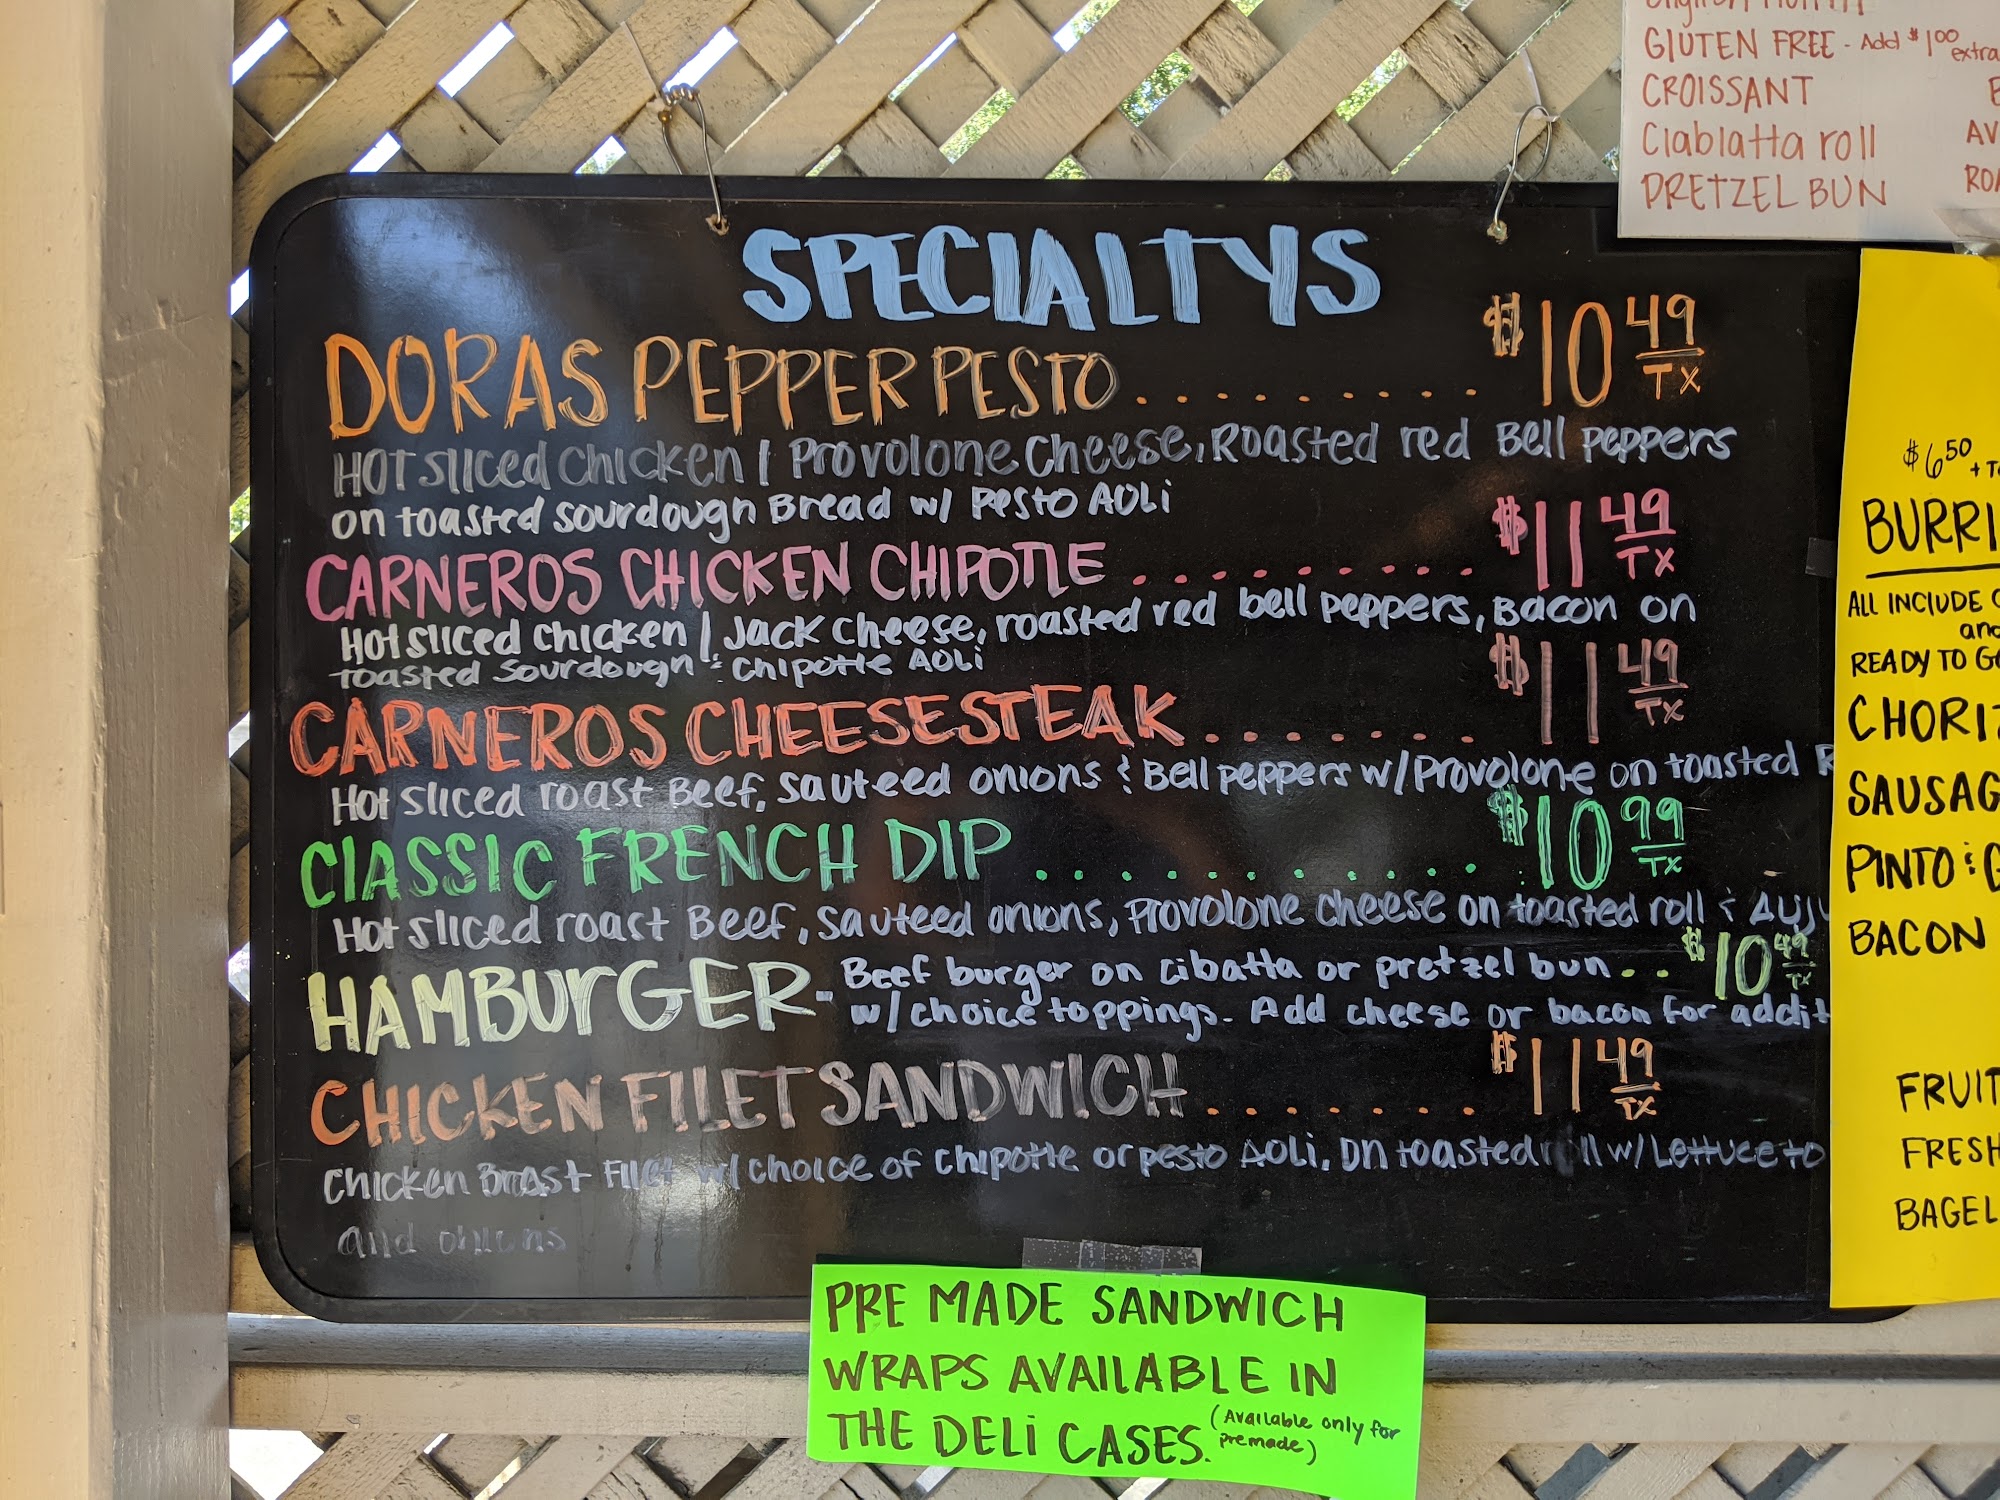 SPECIALTYS
DORAS PEPPER PESTO ......... $10 49 TX
HOT SLICED CHICKEN | PROVOLONE CHEESE, ROASTED red Bell peppers
on toasted sourdough Bread w/ PESTO AOLi
CARNEROS CHICKEN CHIPOTLE ......... $11 49 TX
Hot sliced chicken | Jack cheese, roasted red bell peppers, Bacon on
toasted sourdough & chipotle AOLi
CARNEROS CHEESESTEAK ....... $11 49 TX
Hot sliced roast Beef, sauteed onions & Bell peppers w/ Provolone on toasted
CLASSIC FRENCH DIP ........... $10 99 TX
Hot sliced roast Beef, sauteed onions, provolone cheese on toasted roll &
HAMBURGER - Beef burger on cibatta or pretzel bun .. $10 49 TX
w/ choice toppings. Add cheese or bacon for addit
CHICKEN FILET SANDWICH ....... $11 49 TX
Chicken Breast Filet w/ choice of chipotle or pesto AOLi, on toasted roll w/ Lettuce to
and onions
PRE MADE SANDWICH
WRAPS AVAILABLE IN
THE DELI CASES. (Available only for
premade)
GLUTEN FREE - Add $1.00 extra
CROISSANT
Ciablatta roll
PRETZEL BUN
AV
ROA
$6.50 + T
BURRI
ALL INCLUDE
and
READY TO G
CHORIZ
SAUSAG
PINTO & 
BACON
FRUIT
FRESH
BAGEL